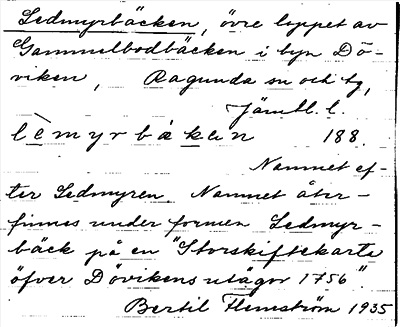 Ledmyrbäcken, övre loppet av
Gammelbodbäcken i byn Dö-
viken, Ragunda sn och tg,
Jämtl. l.
lèmyrbäkən 188.
Namnet ef-
ter Ledmyren. Namnet åter-
finnes under formen Ledmyr-
bäck på en "Storskifteskarta
öfver Dövikens utägor 1756."
Bertil Flemström 1935